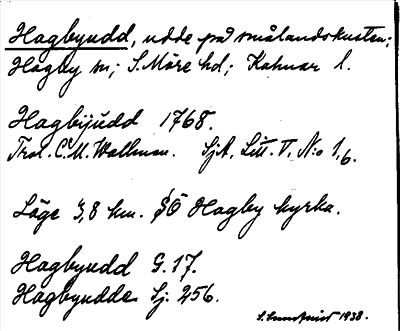 Hagbyudd, udde på smålandskusten;
Hagby sn; S. Möre hd; Kalmar l.
Hagbijudd 1768.
Trol. C. M. Wallman. SjA, Litt. V, N:o 1,6.
Läge 3,8 km. SÖ Hagby kyrka.
Hagbyudd G. 17.
Hagbyudde Sj. 256.
1938.